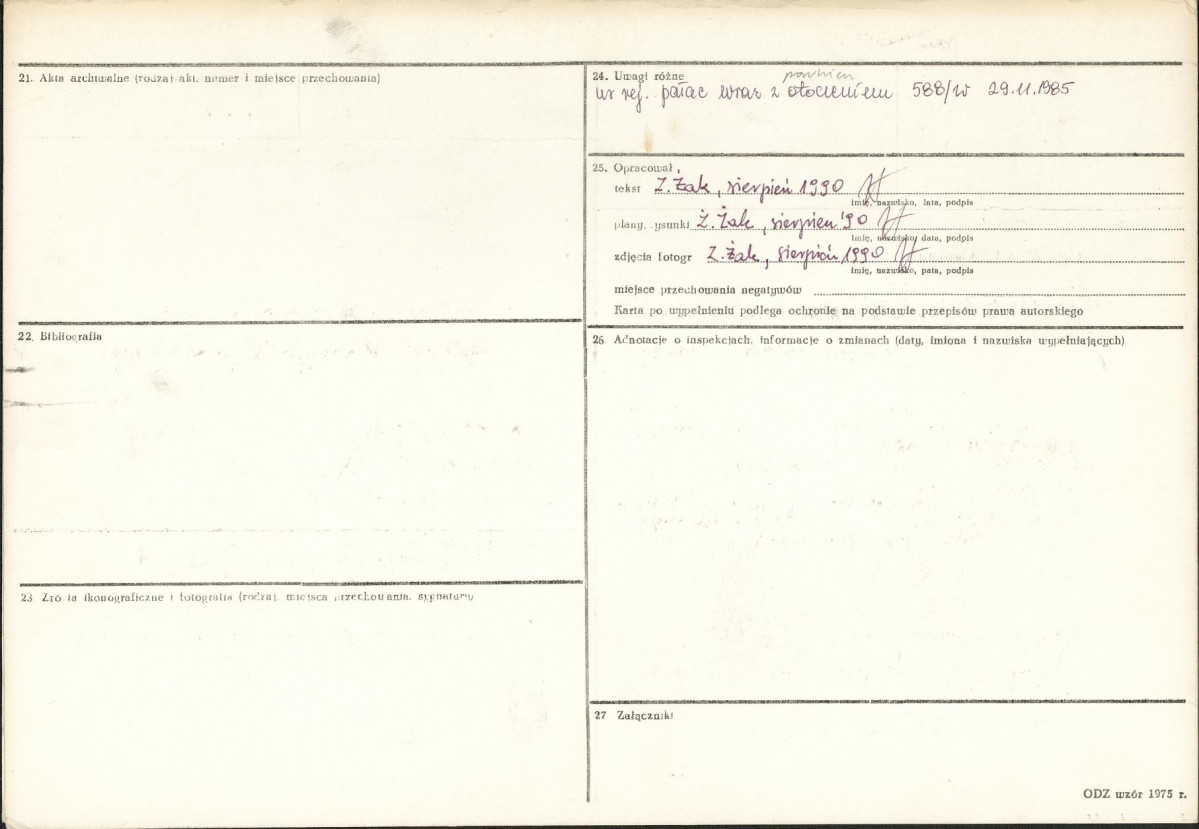 21. Akta archiwalne (rodzaj akt, numer i miejsce przechowania)
22. Bibliografia
23 Źródła ikonograficzne i fotografia (rodzaj, miejsca przechowania, sygnatury)
24. Uwagi różne
w rej. pałac wraz z otoczeniem 588/w 29.11.1985
25. Opracował
tekst Z. Żak, sierpień 1990
imię, nazwisko, data, podpis
plany, rysunki Z. Żak, sierpień '90
imię, nazwisko, data, podpis
zdjęcia fotogr Z. Żak, sierpień 1990
imię, nazwisko, data, podpis
miejsce przechowania negatywów
Karta po wypełnieniu podlega ochronie na podstawie przepisów prawa autorskiego
26. Adnotacje o inspekcjach, informacje o zmianach (daty, imiona i nazwiska wypełniających)
27 Załączniki
ODZ wzór 1975 r.